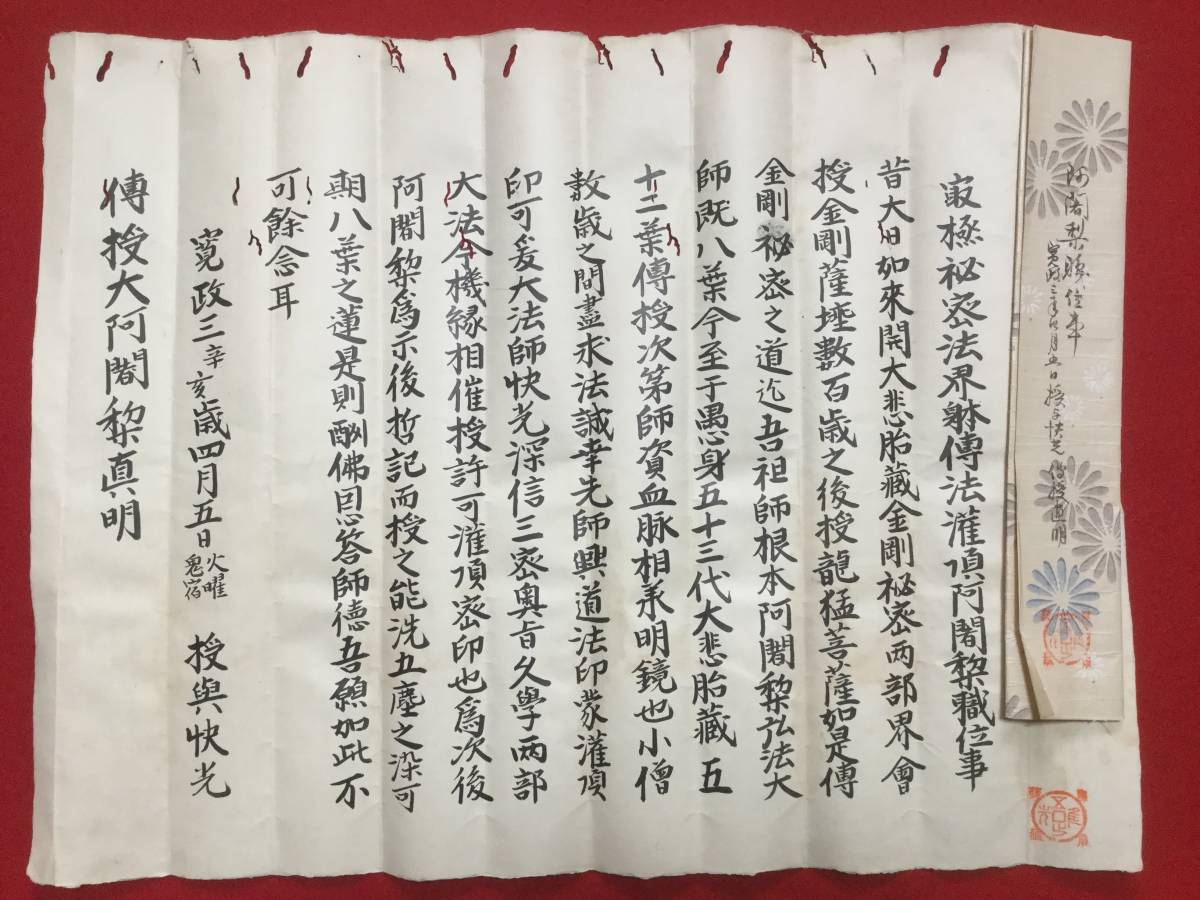 阿闍梨職位事
寛政三年四月五日授与快光傳授真明
㝡極祕密法界躰傳法灌頂阿闍梨職位事
昔大日如來開大悲胎藏金剛祕密两部界會
授金剛薩埵數百歳之後授龍猛菩薩如是傳
金剛祕密之道迄吾祖師根本阿闍梨弘法大
師既八葉今至于愚身五十三代大悲胎藏五
十二葉傳授次第師資血脉相承明鏡也小僧
数歳之間盡求法誠幸先師興道法印蒙灌頂
印可爰大法師快光深信三密奥旨久學两部
大法今機縁相催授許可灌頂密印也爲次後
阿闍梨爲示後哲記而授之能洗五塵之染可
期八葉之蓮是則酬佛恩答師徳吾願如此不
可餘念耳
寛政三辛亥歳四月五日火曜鬼宿 授與快光
傳授大阿闍梨真明